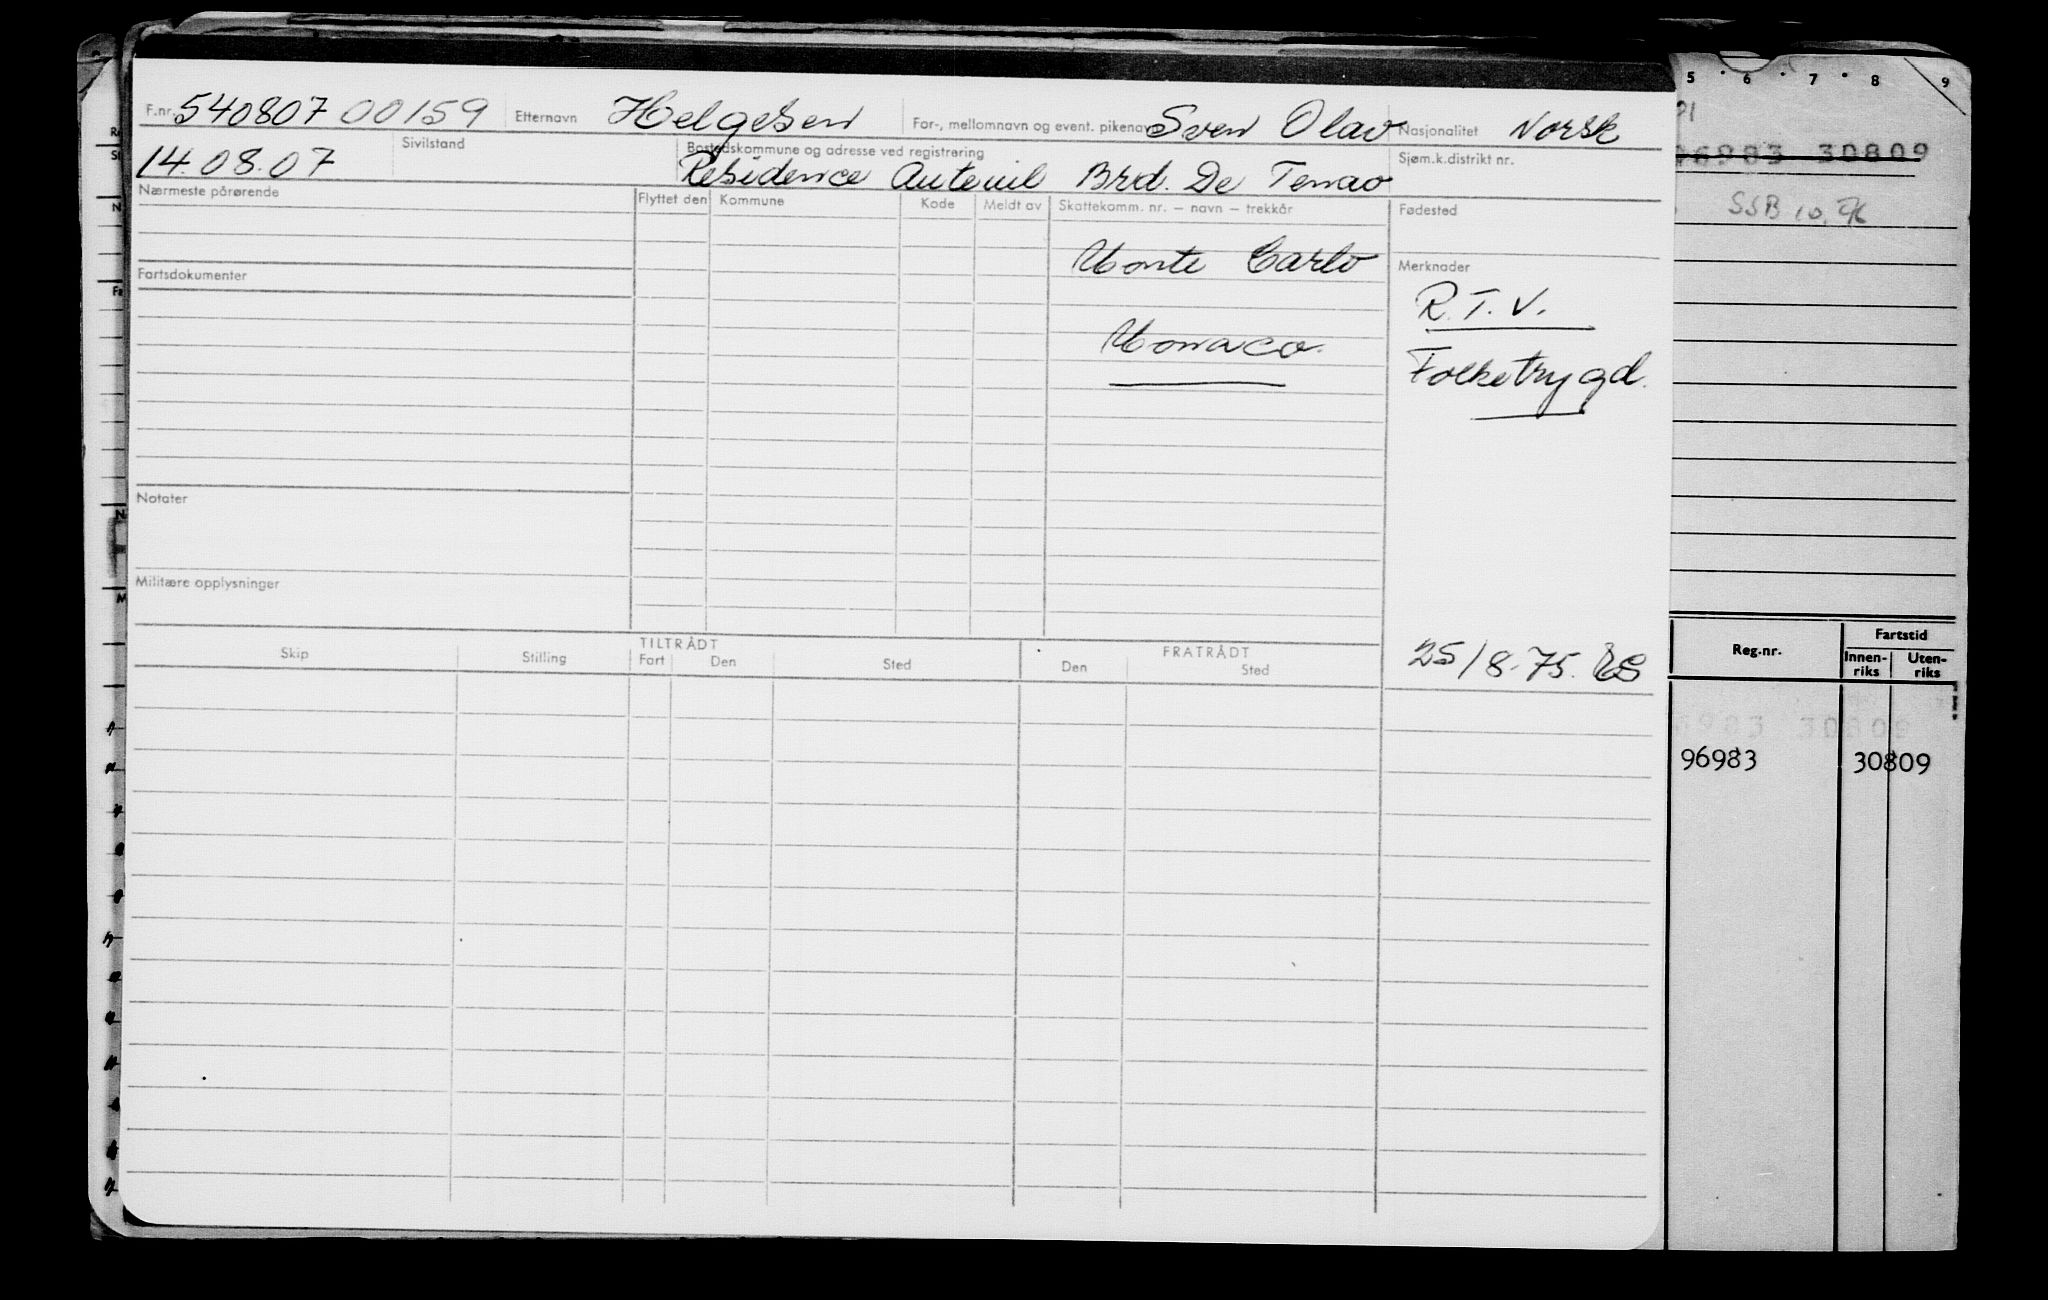 F.nr. 540807 00159 Etternavn Helgesen For-, mellomnavn og event. pikenavn Sven Olav Nasjonalitet Norsk
14.08.07 Sivilstand Bostedskommune og adresse ved registrering Residence Auteuil Brd. De Tenao Sjøm.k.distrikt nr.
Nærmeste pårørende Flyttet den Kommune Kode Meldt av Skattekomm. nr. – navn – trekkår Fødested
Monte Carlo
Fartsdokumenter Merknader
R.T.V.
Monaco.
Folketrygd.
Notater
Militære opplysninger
Skip Stilling TILTRÅDT Fart Den Sted FRATRÅDT Den Sted
25/8-75.
5 6 7 8 9
96983 30809
SSB 10.
Reg.nr. Fartstid
Innen-riks Uten-riks
983 30809
96983 30809